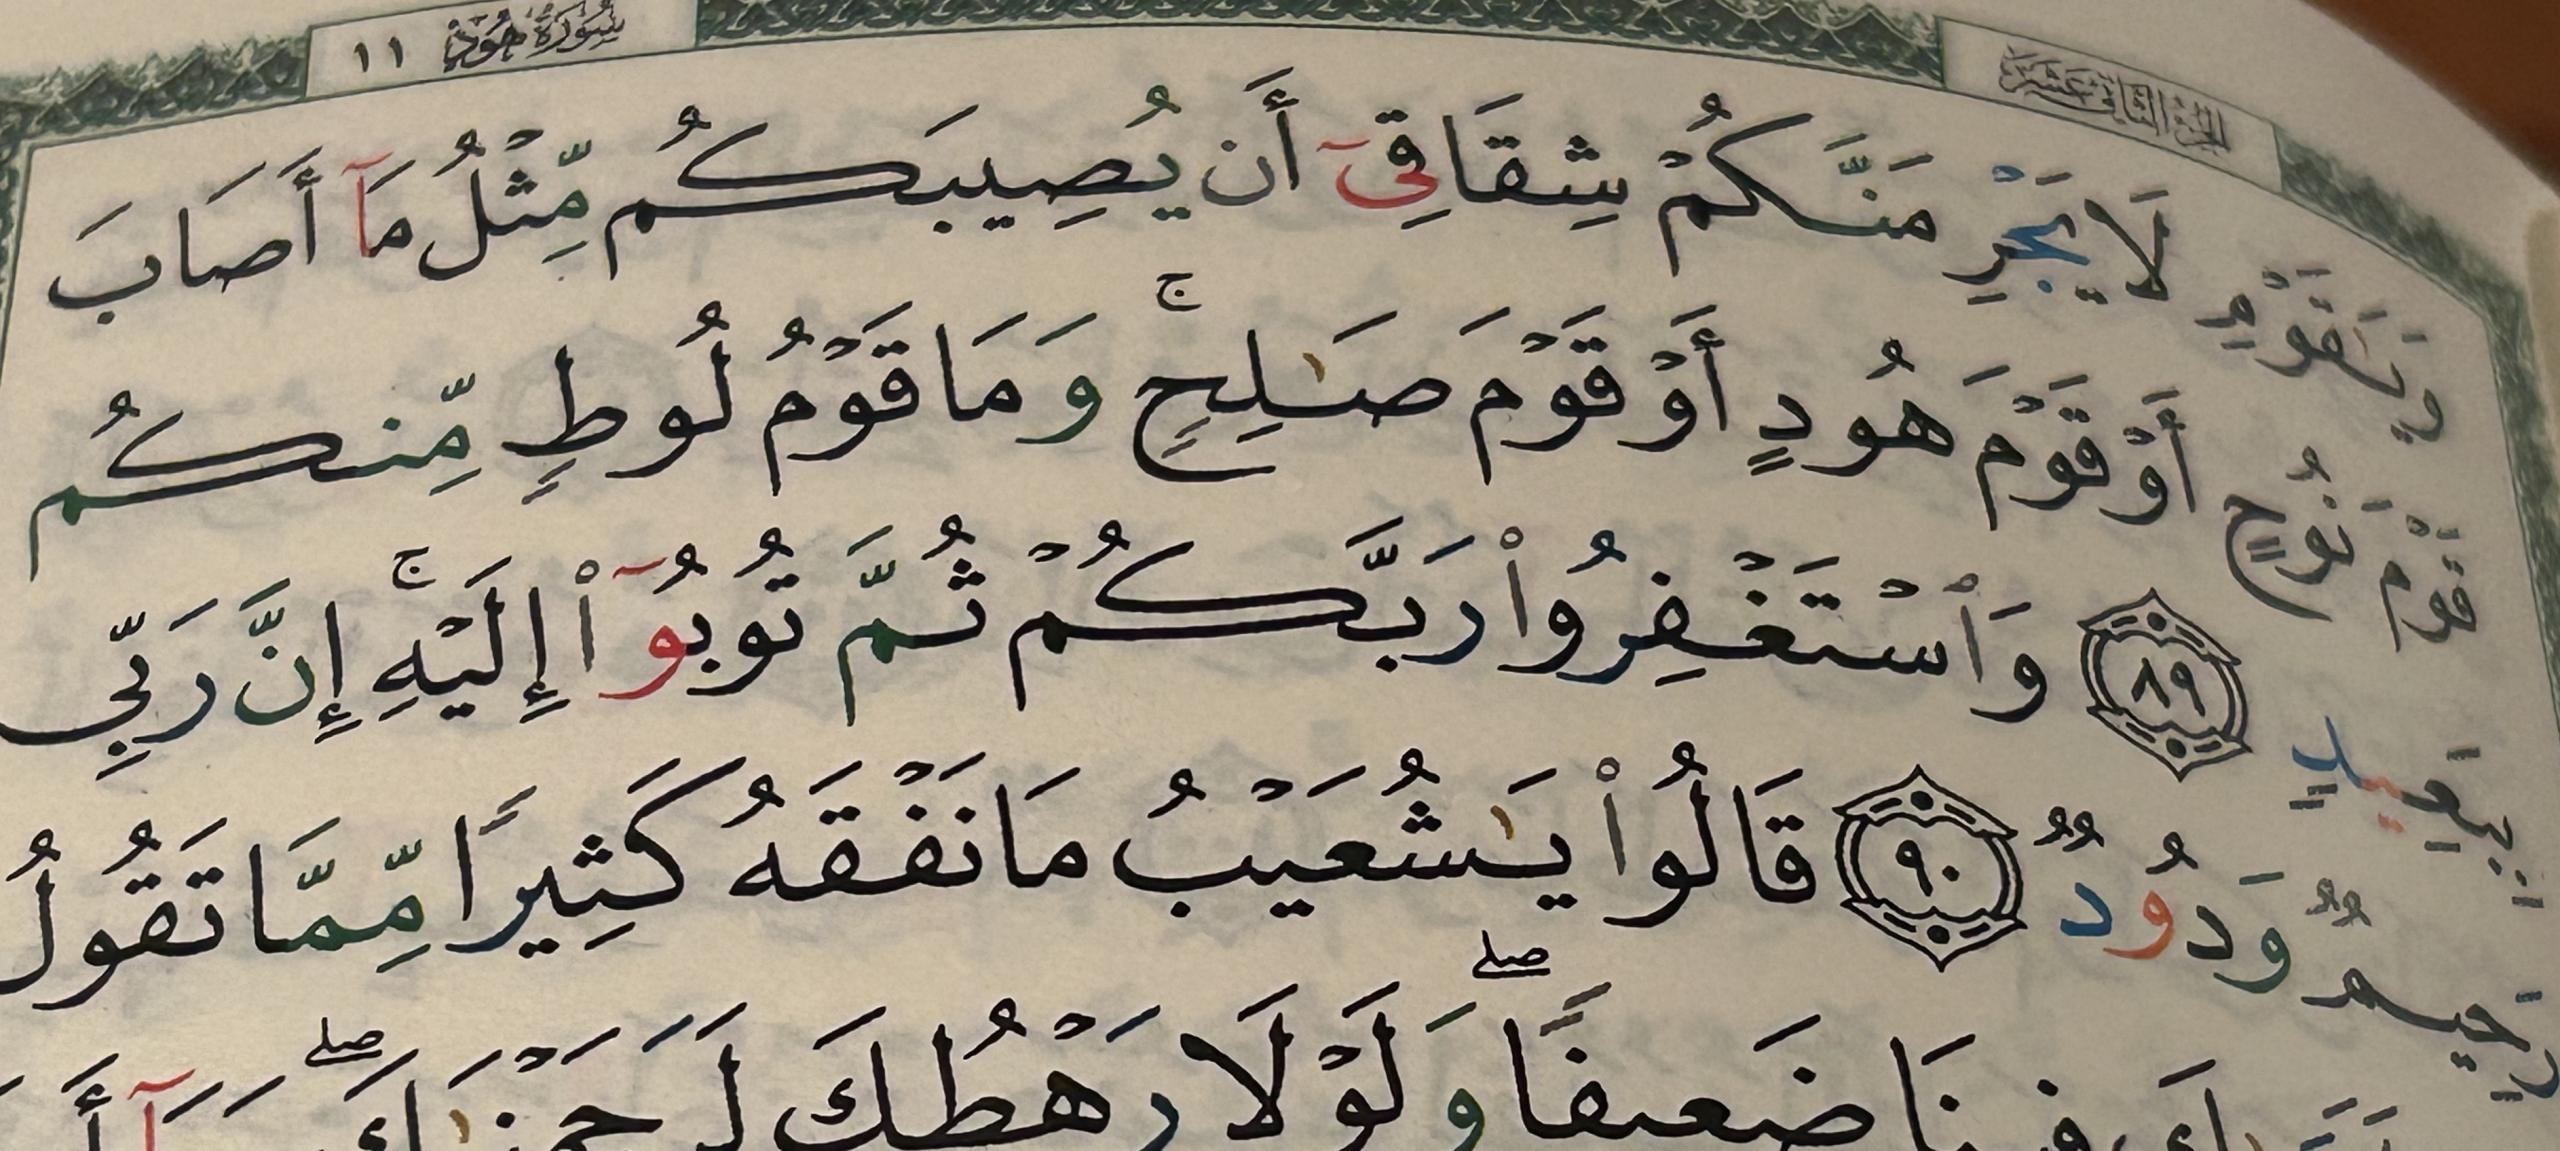 الجزء الثاني عشر
سُورَةُ هُودٍ ١١
وَيَـٰقَوْمِ لَا يَجْرِمَنَّكُمْ شِقَاقِىٓ أَن يُصِيبَكُم مِّثْلُ مَآ أَصَابَ
قَوْمَ نُوحٍ أَوْ قَوْمَ هُودٍ أَوْ قَوْمَ صَـٰلِحٍ ۚ وَمَا قَوْمُ لُوطٍ مِّنكُم
بِبَعِيدٍ ٨٩ وَٱسْتَغْفِرُوا۟ رَبَّكُمْ ثُمَّ تُوبُوٓا۟ إِلَيْهِ ۚ إِنَّ رَبِّى
رَحِيمٌ وَدُودٌ ٩٠ قَالُوا۟ يَـٰشُعَيْبُ مَا نَفْقَهُ كَثِيرًا مِّمَّا تَقُولُ
فِينَا ضَعِيفًا ۖ وَلَوْلَا رَهْطُكَ لَرَجَمْنَـٰكَ ۖ